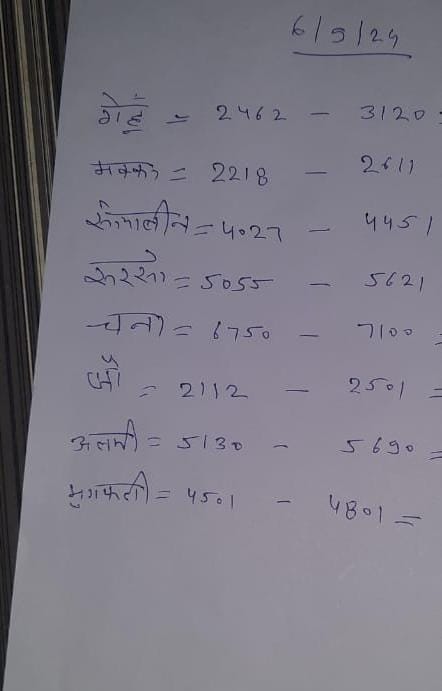 6/9/24
गेहूँ = 2462 - 3120 =
मक्का = 2218 - 2611
सोयाबीन = 4027 - 4451
सरसो = 5055 - 5621
चना = 6750 - 7100 =
जौ = 2112 - 2501 =
अलसी = 5130 - 5690 =
मुगफली = 4501 - 4801 =